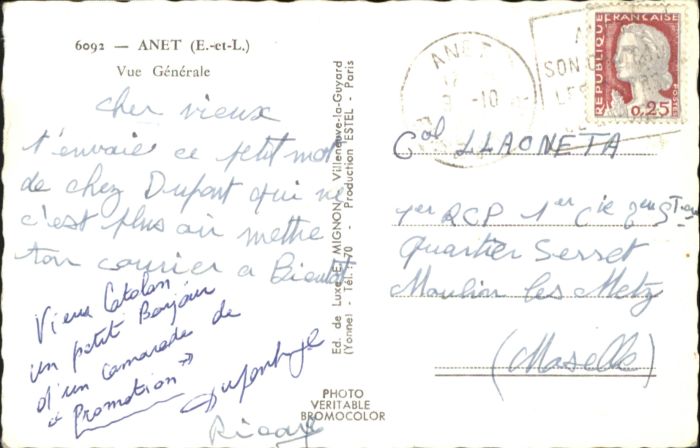 6092 — ANET (E.-et-L.)
Vue Générale
cher vieux
t'envoie ce petit mot
de chez Dupont qui ne
c'est plus où mettre
ton courier a Bientôt
Vieux Catalan
un petit Bonjour
d'un camarade de
"Promotion"
Ed. de Luxe EL MIGNON, Villeneuve-la-Guyard
(Yonne) - Tél.: 70 - Production ESTEL - Paris
PHOTO
VERITABLE
BROMOCOLOR
ANET
-10
SON
REPUBLIQUE FRANÇAISE
POSTES
0,25
Col LLAONETA
1er RCP 1er Cie 2eme
Quartier Serret
Moulin les Metz
(Moselle)